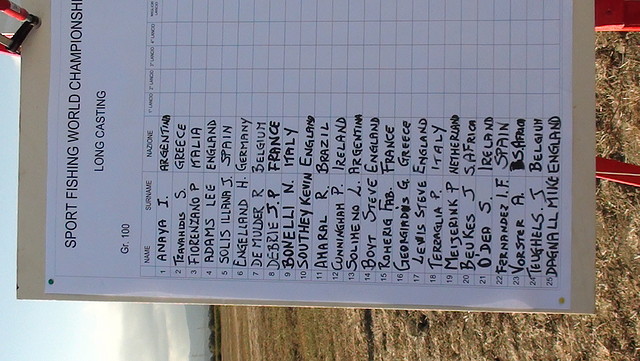 SPORT FISHING WORLD CHAMPIONSHI
LONG CASTING
Gr. 100
NAME SURNAME NAZIONE 1° LANCIO 2° LANCIO 3° LANCIO 4° LANCIO
1 ANAYA I. ARGENTINA
2 S. GREECE
3 FIORENZANO P MALIA
4 ADAMS LEE ENGLAND
5 SOLIS ILIANA J. SPAIN
6 ENGELLAND H. GERMANY
7 DE MULDER R BELGIUM
8 DEBRIE J.P FRANCE
9 BONELLI N. ITALY
10 SOUTHEY KEVIN ENGLAND
11 AMARAL R. BRAZIL
12 CUNNINGHAM P. IRELAND
13 SOLIMENO L. ARGENTINA
14 BOYT STEVE ENGLAND
15 ROMERIG FAB. FRANCE
16 GEORGIADUS G. GREECE
17 LEWIS STEVE ENGLAND
18 TERRAGLIA P. ITALY
19 MEIJERINK P NETHERLAND
20 BEUKES J S.AFRICA
21 O'DEA S. IRELAND
22 FERNANDEZ I.F. SPAIN
23 VORSTER A. S.AFRICA
24 TEUGHELS. J BELGIUM
25 DAGNALL MIKE ENGLAND